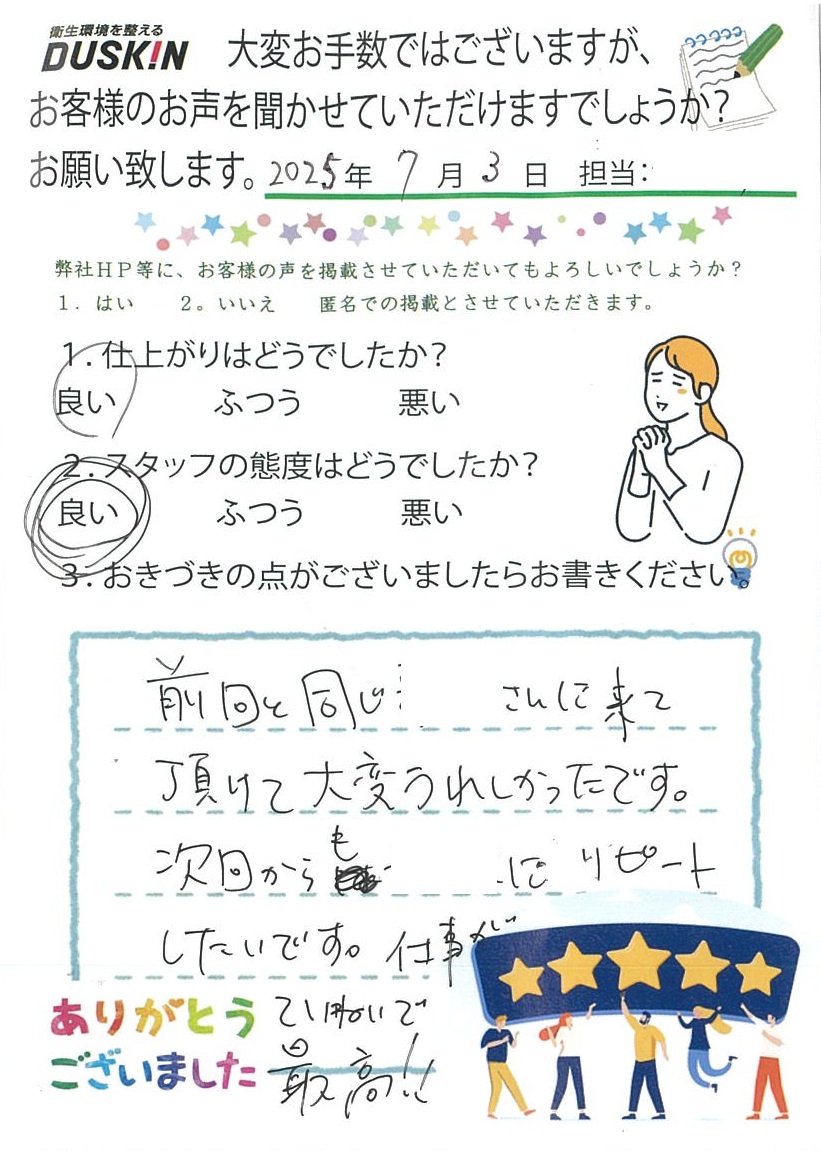 衛生環境を整える
DUSKIN
大変お手数ではございますが、
お客様のお声を聞かせていただけますでしょうか？
お願い致します。2025年 7月 3日 担当：
弊社ＨＰ等に、お客様の声を掲載させていただいてもよろしいでしょうか？
１．はい ２。いいえ 匿名での掲載とさせていただきます。
１．仕上がりはどうでしたか？
良い ふつう 悪い
２．スタッフの態度はどうでしたか？
良い ふつう 悪い
３．おきづきの点がございましたらお書きください。
前回と同じ さんに来て
頂けて大変うれしかったです。
次回からも にリピート
したいです。仕事が
ていねいで
最高!!
ありがとう
ございました